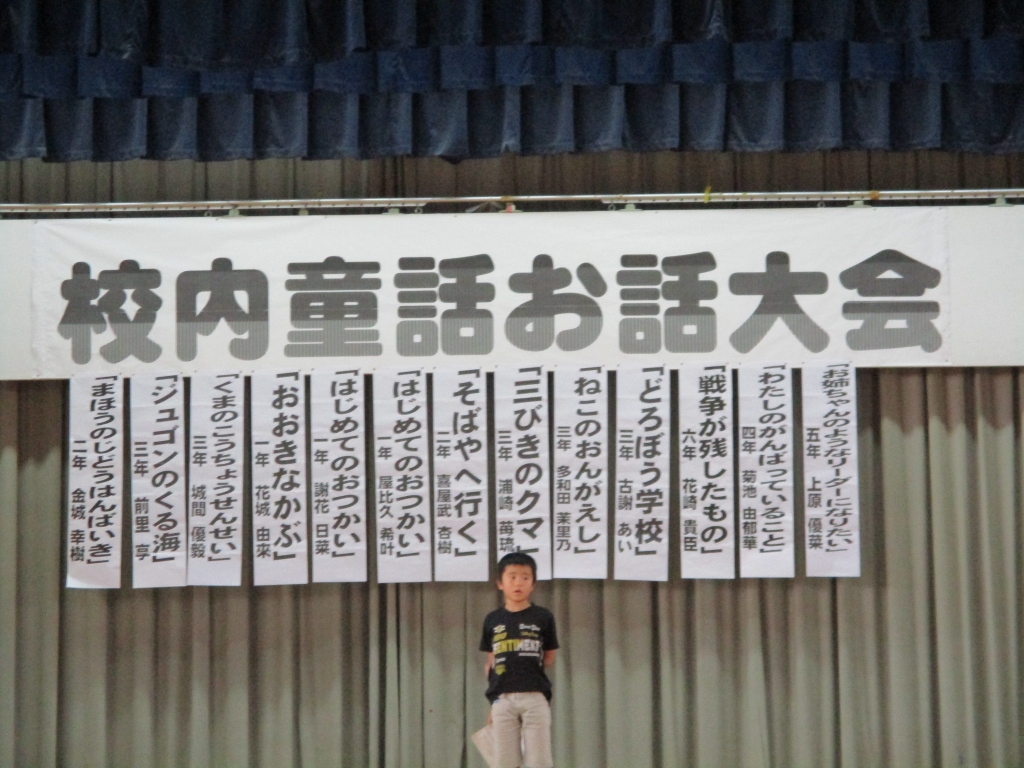 校内童話お話大会
「お姉ちゃんのようなリーダーになりたい」
五年 上原 優菜
「わたしのがんばっていること」
四年 菊池 由郁華
「戦争が残したもの」
六年 花崎 貴臣
「どろぼう学校」
三年 古謝 あい
「ねこのおんがえし」
三年 多和田 茉里乃
「三びきのクマ」
三年 浦崎 苺琉
「そばやへ行く」
二年 喜屋武 杏樹
「はじめてのおつかい」
一年 屋比久 希叶
「はじめてのおつかい」
一年 謝花 日菜
「おおきなかぶ」
一年 花城 由來
「くまのこうちょうせんせい」
三年 城間 優毅
「ジュゴンのくる海」
三年 前里 享
「まほうのじどうはんばいき」
二年 金城 幸樹
SENTIMENT